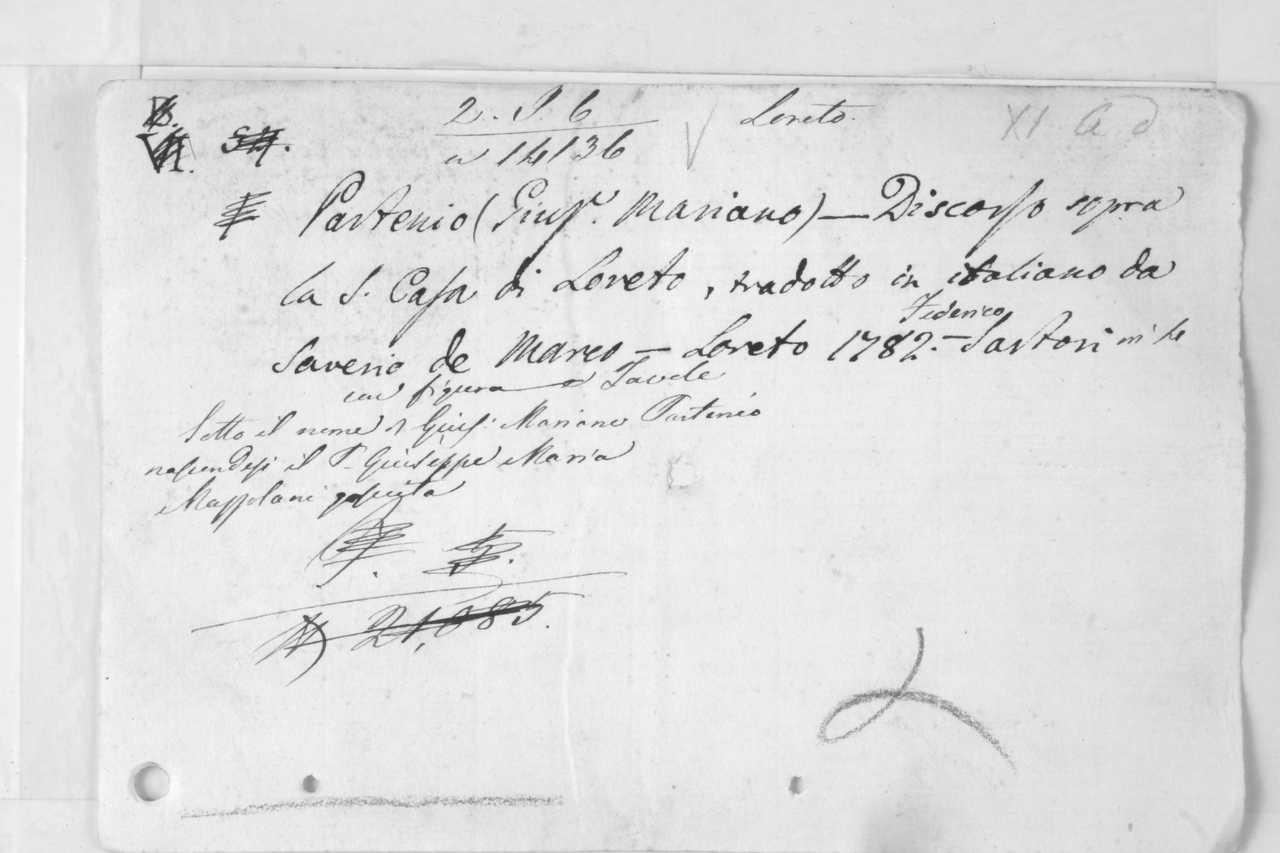 2. S. 6 Loreto.
a 14136
XI a d
Partenio (Gius.e Mariano) — Discorso sopra
la S. Casa di Loreto, tradotto in italiano da
Saverio de Marco — Loreto 1782. — Federico Sartori in 12
con figura e Tavole
Sotto il nome di Gius: Mariano Partenio
nascondesi il P. Giuseppe Maria
Mazzolari gesuita
21,085.